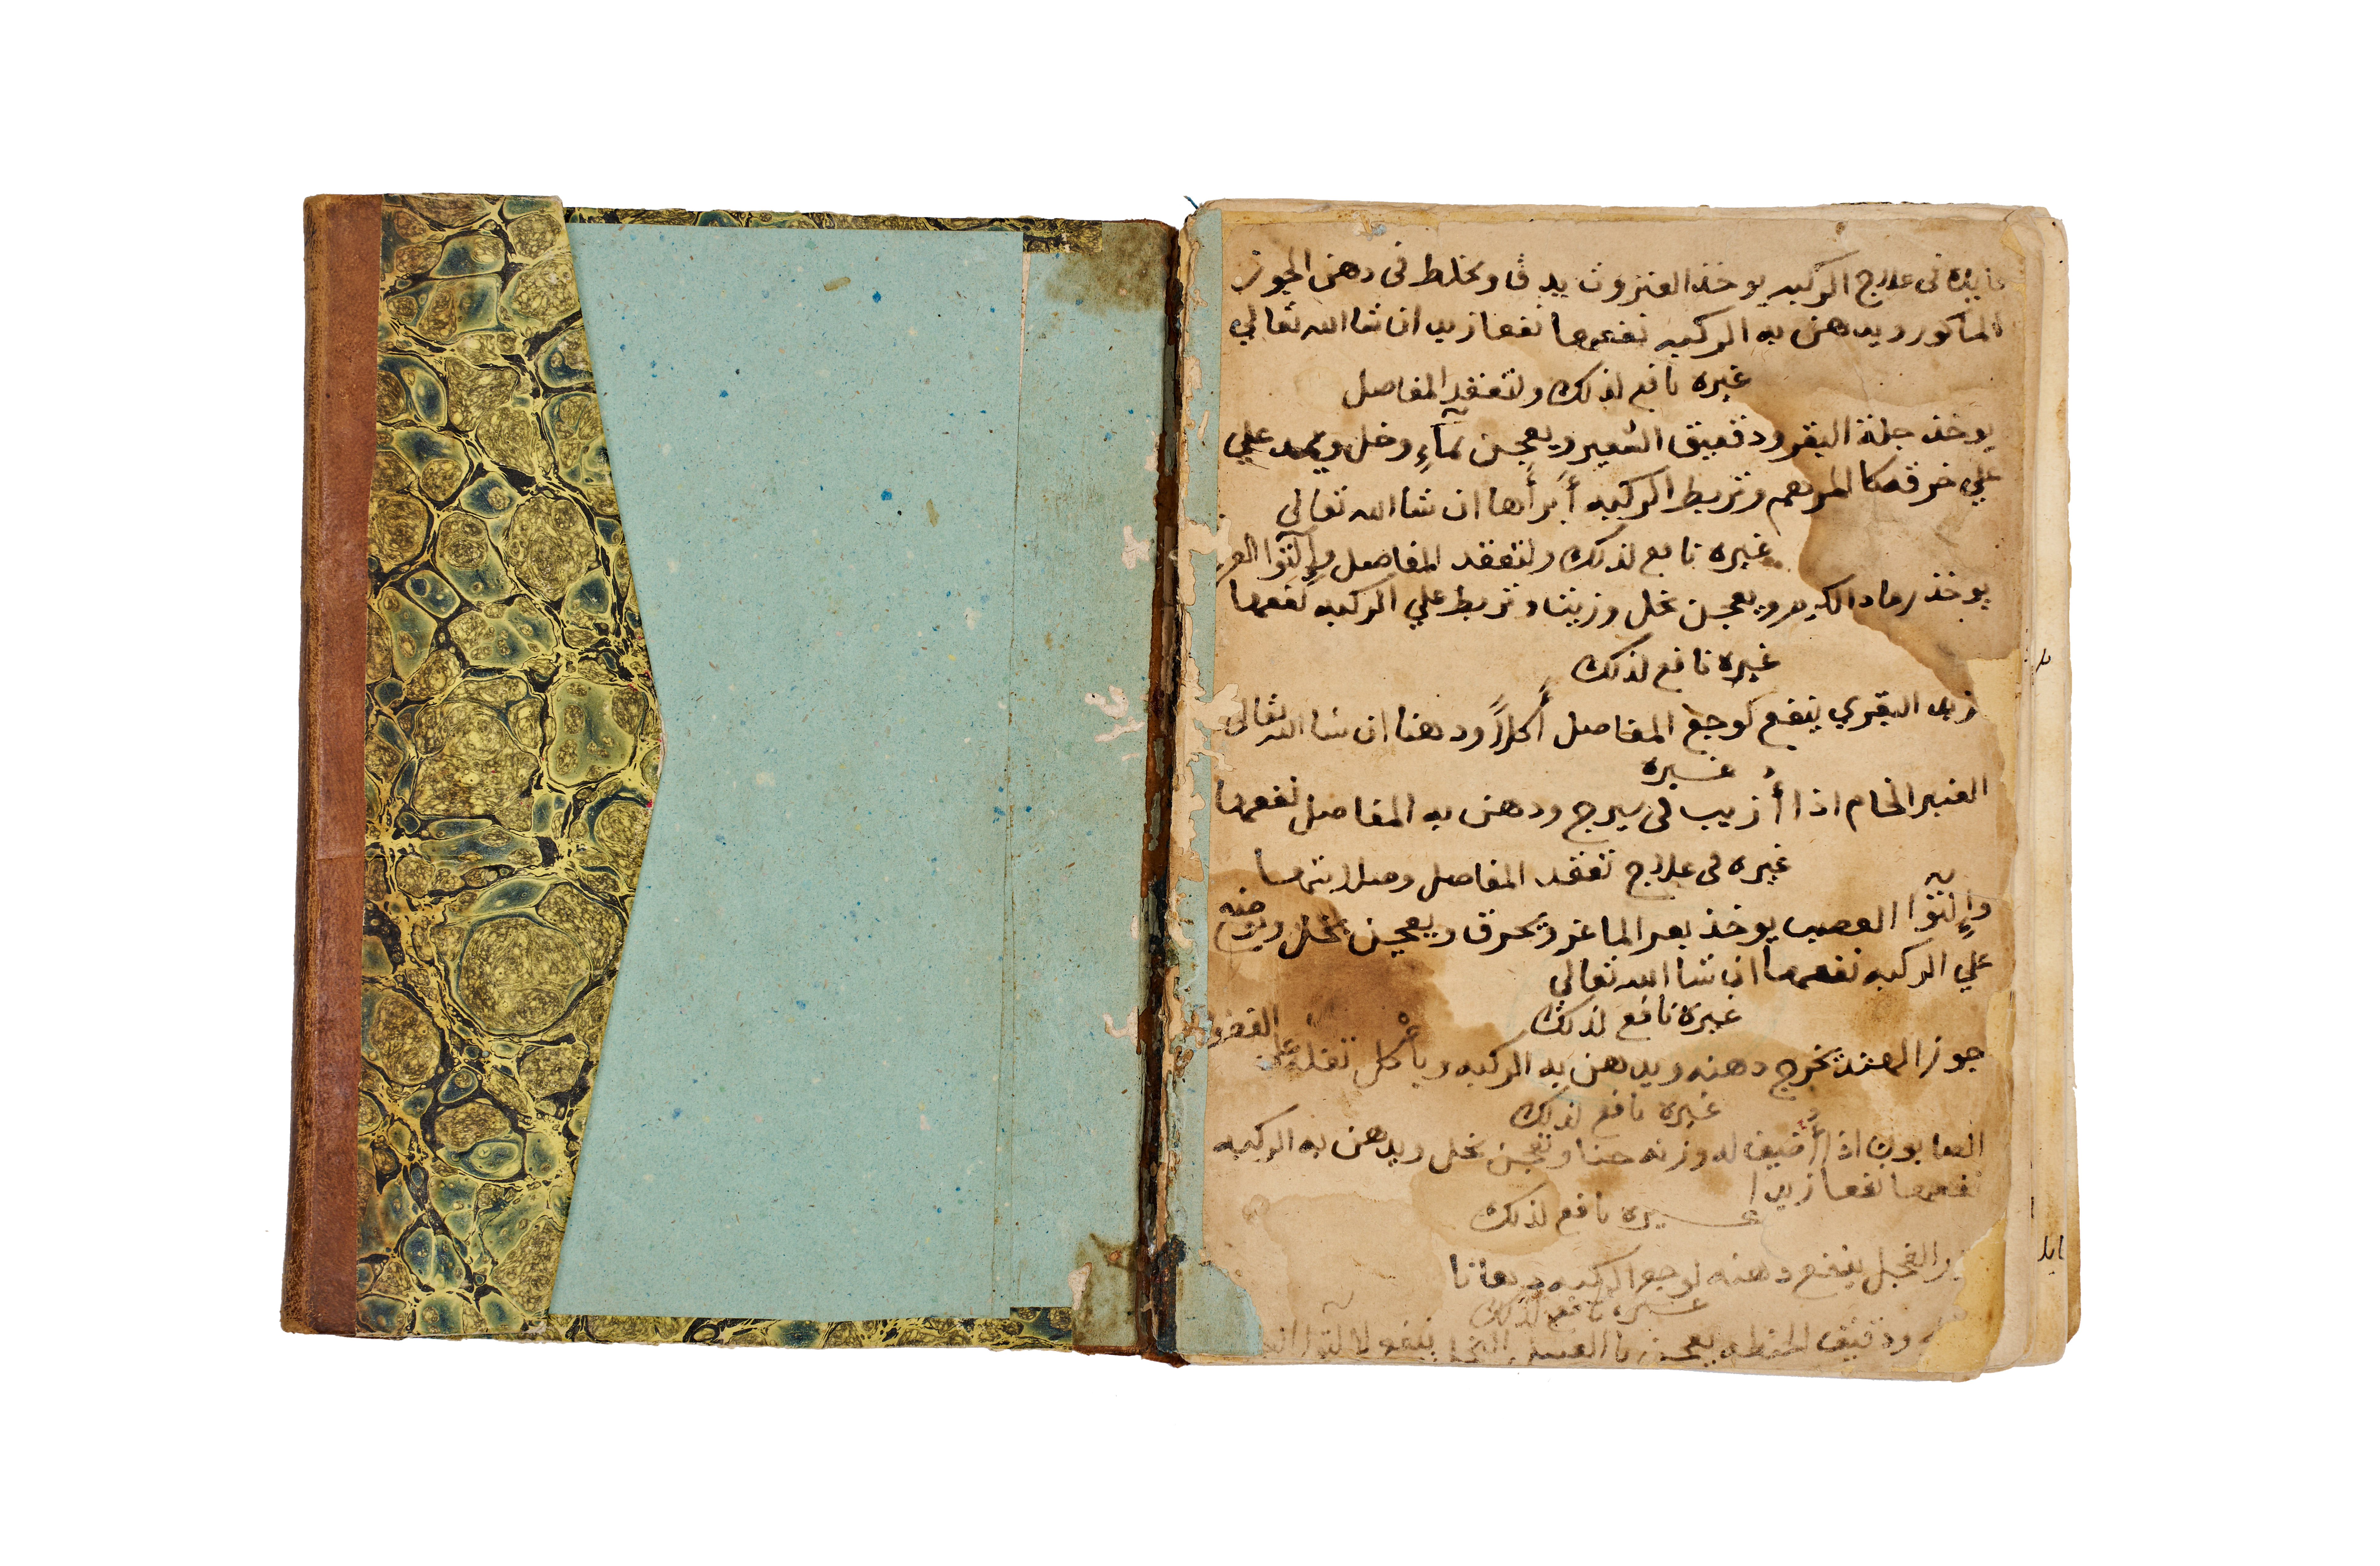 فايده في علاج الركبه يوخذ العنزروت يدق ويخلط في دهن الجوز
الماكور ويدهن به الركبه نفعها نفعا زيد ان شا الله تعالي
غيره نافع لذلك ولتعقد المفاصل
يوخذ جلة البقر ودقيق الشعير ويعجن بمآءٍ وخل ويمد علي
علي خرقه كالمرهم وتربط الركبه أبرأها ان شا الله تعالي
غيره نافع لذلك ولتعقد المفاصل وإلتوآ
يوخذ رماد ويعجن بخل وزيت وتربط علي الركبه نفعها
غيره نافع لذلك
زبد البقري ينفع لوجع المفاصل أكلاً ودهنا ان شا الله تعالي
غيره
العنبر الخام اذا أُزيب في سيرج ودهن به المفاصل نفعها
غيره في علاج تعقد المفاصل وصلابتها
وإلتوآ العصب يوخذ بعر الماعز ويحرق ويعجن بخل
علي الركبه نفعها ان شا الله تعالي
غيره نافع لذلك
جوز الهند يخرج دهنه ويدهن به الركبه ويأكل تفله علي
غيره نافع لذلك
الصابون اذا أُضيف له وزنه حنا وتعجن بخل ويدهن به الركبه
نفعها نفعا زيدا
غيره نافع لذلك
الفجل ينفع دهنه لوجع الركبه
غيره نافع لذلك
ودقيق الحنطه يعجن